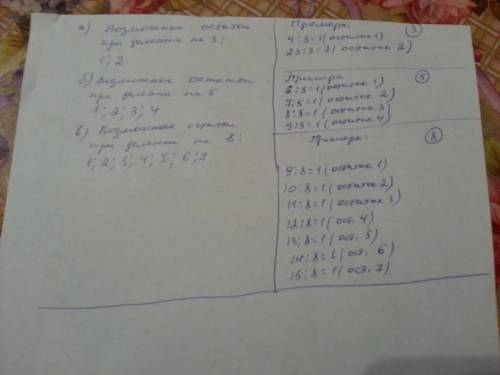 а) Возможные остатки
при делении на 3:
1; 2
б) Возможные остатки
при делении на 5
1; 2; 3; 4.
в) Возможные остатки
при делении на 8:
1; 2; 3; 4; 5; 6; 7.
Примеры: 3
4:3=1 (остаток 1)
23:3=7 (остаток 2)
Примеры 5
6:5=1 (остаток 1)
7:5=1 (остаток 2)
8:5=1 (остаток 3)
9:5=1 (остаток 4)
Примеры: 8
9:8=1 (остаток 1)
10:8=1 (остаток 2)
11:8=1 (остаток 3)
12:8=1 (ост. 4)
13:8=1 (ост. 5)
14:8=1 (ост. 6)
15:8=1 (ост. 7)